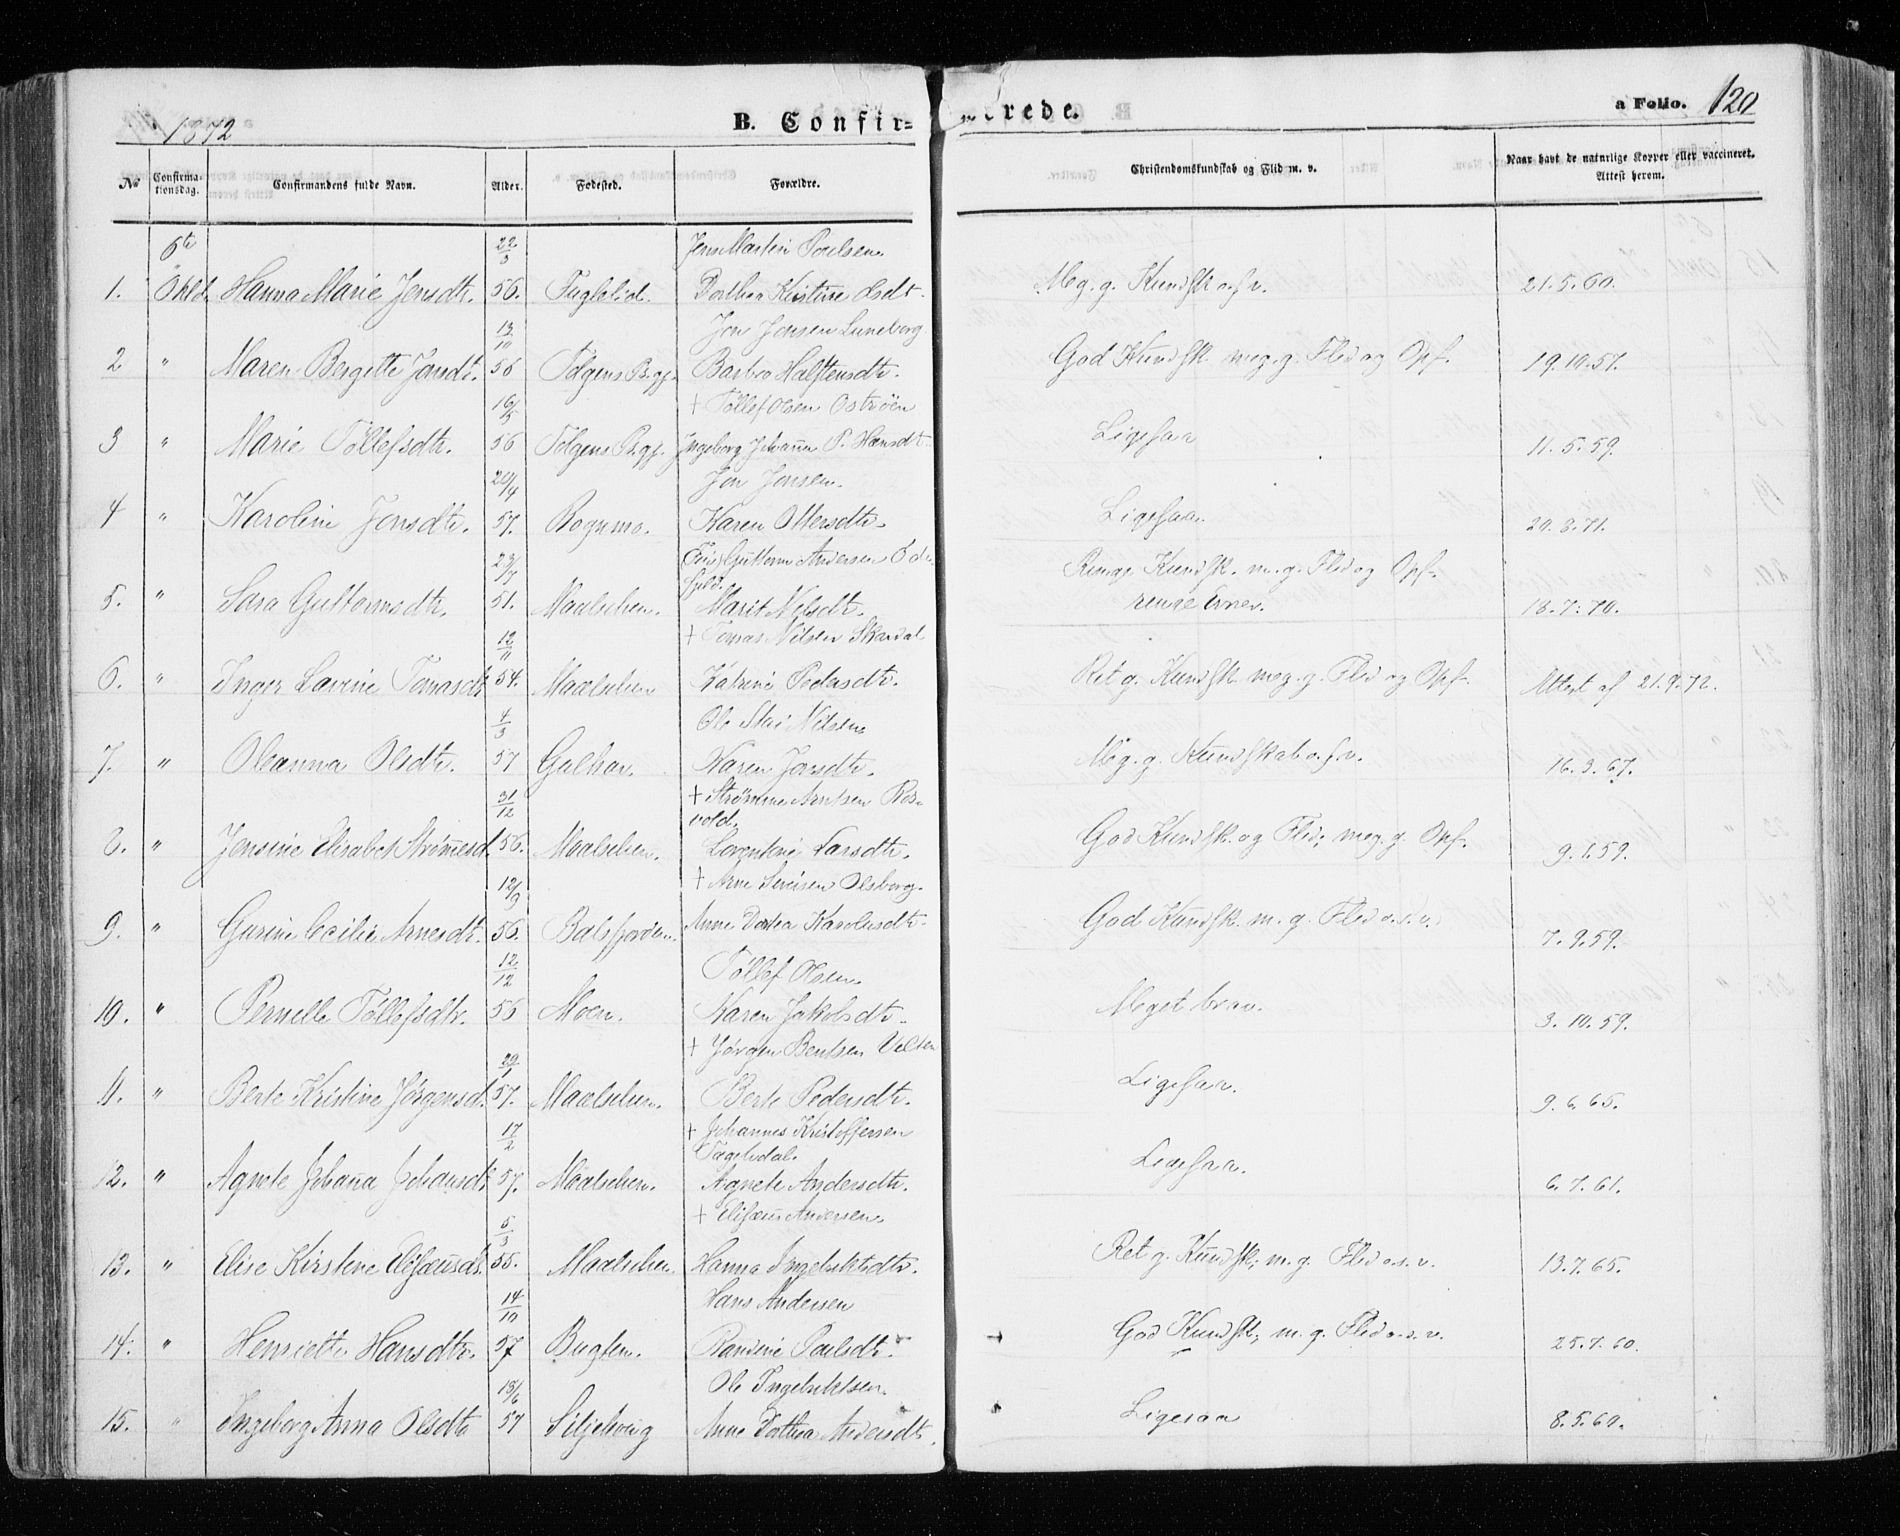 1872 B. Confir= merede. a Folio. 120
No Confirmationsdag. Confirmandens fulde Navn. Alder. Fødested. Forældre. Christendomskundskab og Flid m. v. Naar havt de naturlige Kopper eller vaccineret. Attest herom.
6te 22/3 Jens Martin Poulsen
1. Okt. Hanna Marie Jensdtr. 56. Fuglelid. Dorthea Kristine Olsdtr. Meg. g. Kundsk. o.s.v. 21.5.60.
13/10 Jon Jonsen Luneborg
2 " Maren Bergitte Jonsdtr. 56 Tolgens Pgj. Barbro Halstensdtr. God Kundsk. meg. g. Flid og Opf. 19.10.57.
16/5 + Tollef Olsen Østrøen
3 " Marie Tollefsdtr. 56 Tolgens Pgj. Ingeborg Johanne P. Hansdtr. Ligesaa 11.5.59.
20/4 Jon Jonsen.
4 " Karoline Jonsdtr. 57. Bognmo. Karen Ottersdtr. Ligesaa. 20.8.71.
23/7 Guttorm Andersen
5. " Sara Guttormsdtr. 51. Maalselven. Marit Nilsdtr. Ringe Kundsk. m. g. Flid og Opf. ringe Evner. 18.7.70.
12/11 + Tomas Nilsen Skardal
6. " Inger Lavine Tomasdtr. 54. Maalselven Katrine Pedersdtr. Ret g. Kundsk. meg. g. Flid og Opf. Attest af 21.9.72.
4/3 Ole Nilsen
7. " Oleanna Olsdtr. 57 Golhav. Karen Jonsdtr. Meg. g. Kundskab o.s.v. 16.3.67.
31/12 + Strømme Arntsen Rosvold.
8. " Jensine Elisabet Strømesd. 56. Maalselven. Lorentine Larsdtr. God Kundsk. og Flid; meg. g. Opf. 9.1.59.
12/9 + Arne Simisen Olsborg.
9. " Gurine Cecilie Arnesdtr. 56. Balsfjorden. Anne Dortea Karolusdtr. God Kundsk. m. g. Flid o.s.v. 7.9.59.
12/12 Tollef Olsen
10. " Pernille Tollefsdtr. 56 Moen. Karen Jakobsdtr. Meget brav. 3.10.59.
29/ + Jørgen Bentsen Velten
11. " Berte Kristine Jørgensd. 57. Maalselven. Berte Pedersdtr. Ligesaa. 9.6.65.
17/2 + Johannes Kristoffersen Fagelidal.
12. " Agnete Johana Johansdtr. 57. Maalselven. Agnete Andersdtr. Ligesaa. 6.7.61.
5/3 + Elisæus Andersen
13. " Elise Kirstine Elisæusdtr. 55. Maalselven. Hanna Ingebrigtsdtr. Ret g. Kundsk; m. g. Flid o.s.v. 13.7.65.
14/10 Hans Andersen
14. " Henriette Hansdtr. 57 Bugten. Randine Paulsdtr. God Kundsk; m. g. Flid o.s.v. 25.7.60.
18/6 Ole Ingebriktsen.
15. " Ingeborg Anna Olsdtr 57 Siljehoug Anne Dorthea Andersdtr. Ligesaa 8.5.60.